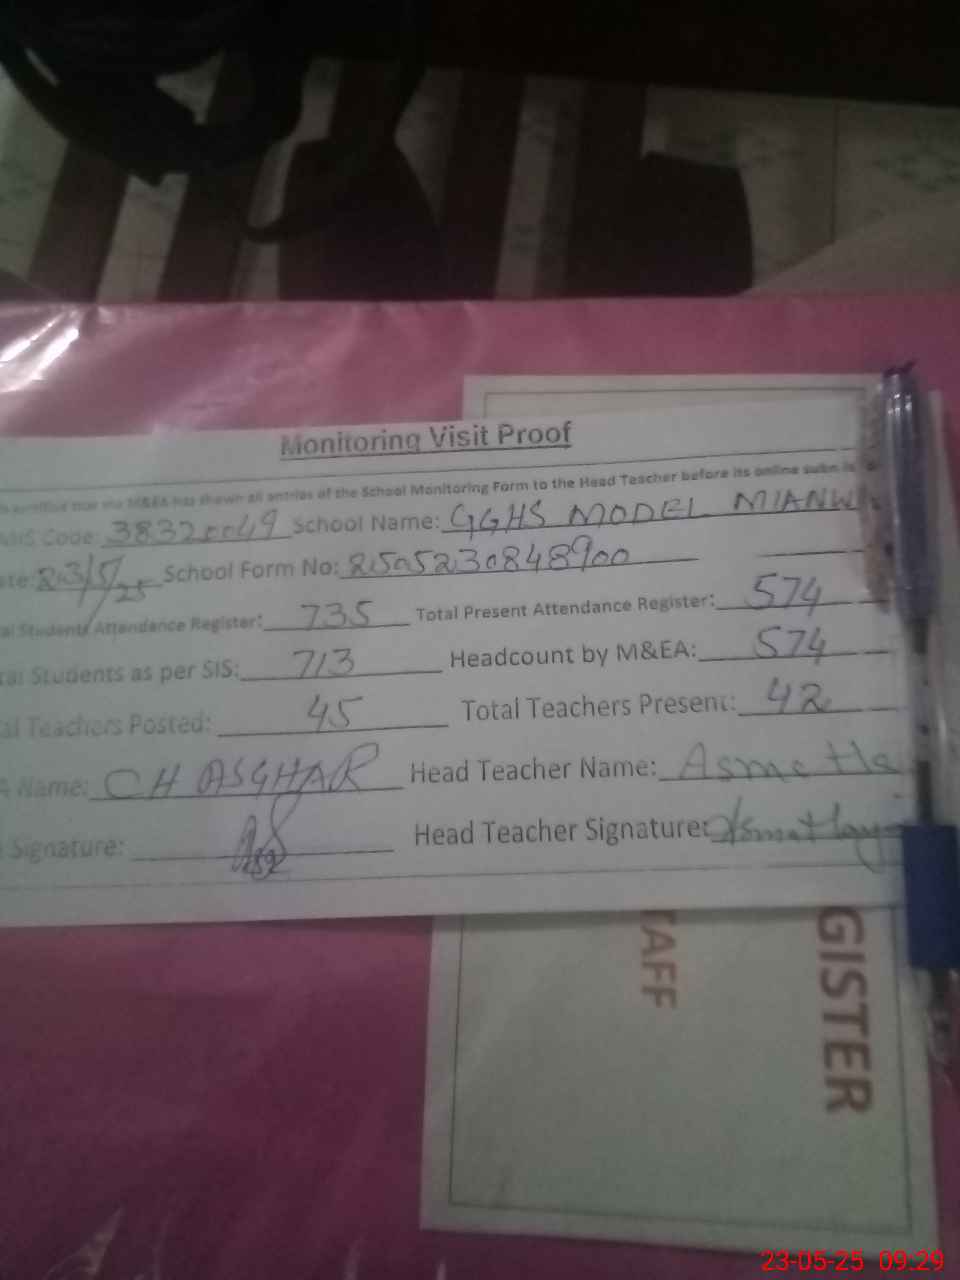 Monitoring Visit Proof
that the M&EA has shown all entries of the School Monitoring Form to the Head Teacher before its online
Code: 38320049 School Name: GGHS MODEL MIANW
23/5/25 School Form No: 250523084 8900
Students Attendance Register: 735 Total Present Attendance Register: 574
Students as per SIS: 713 Headcount by M&EA: 574
Teachers Posted: 45 Total Teachers Present: 42
Name: CH ASGHAR Head Teacher Name: Asmc
Signature: Head Teacher Signature:
TAFF
GISTER
23-05-25 09:29